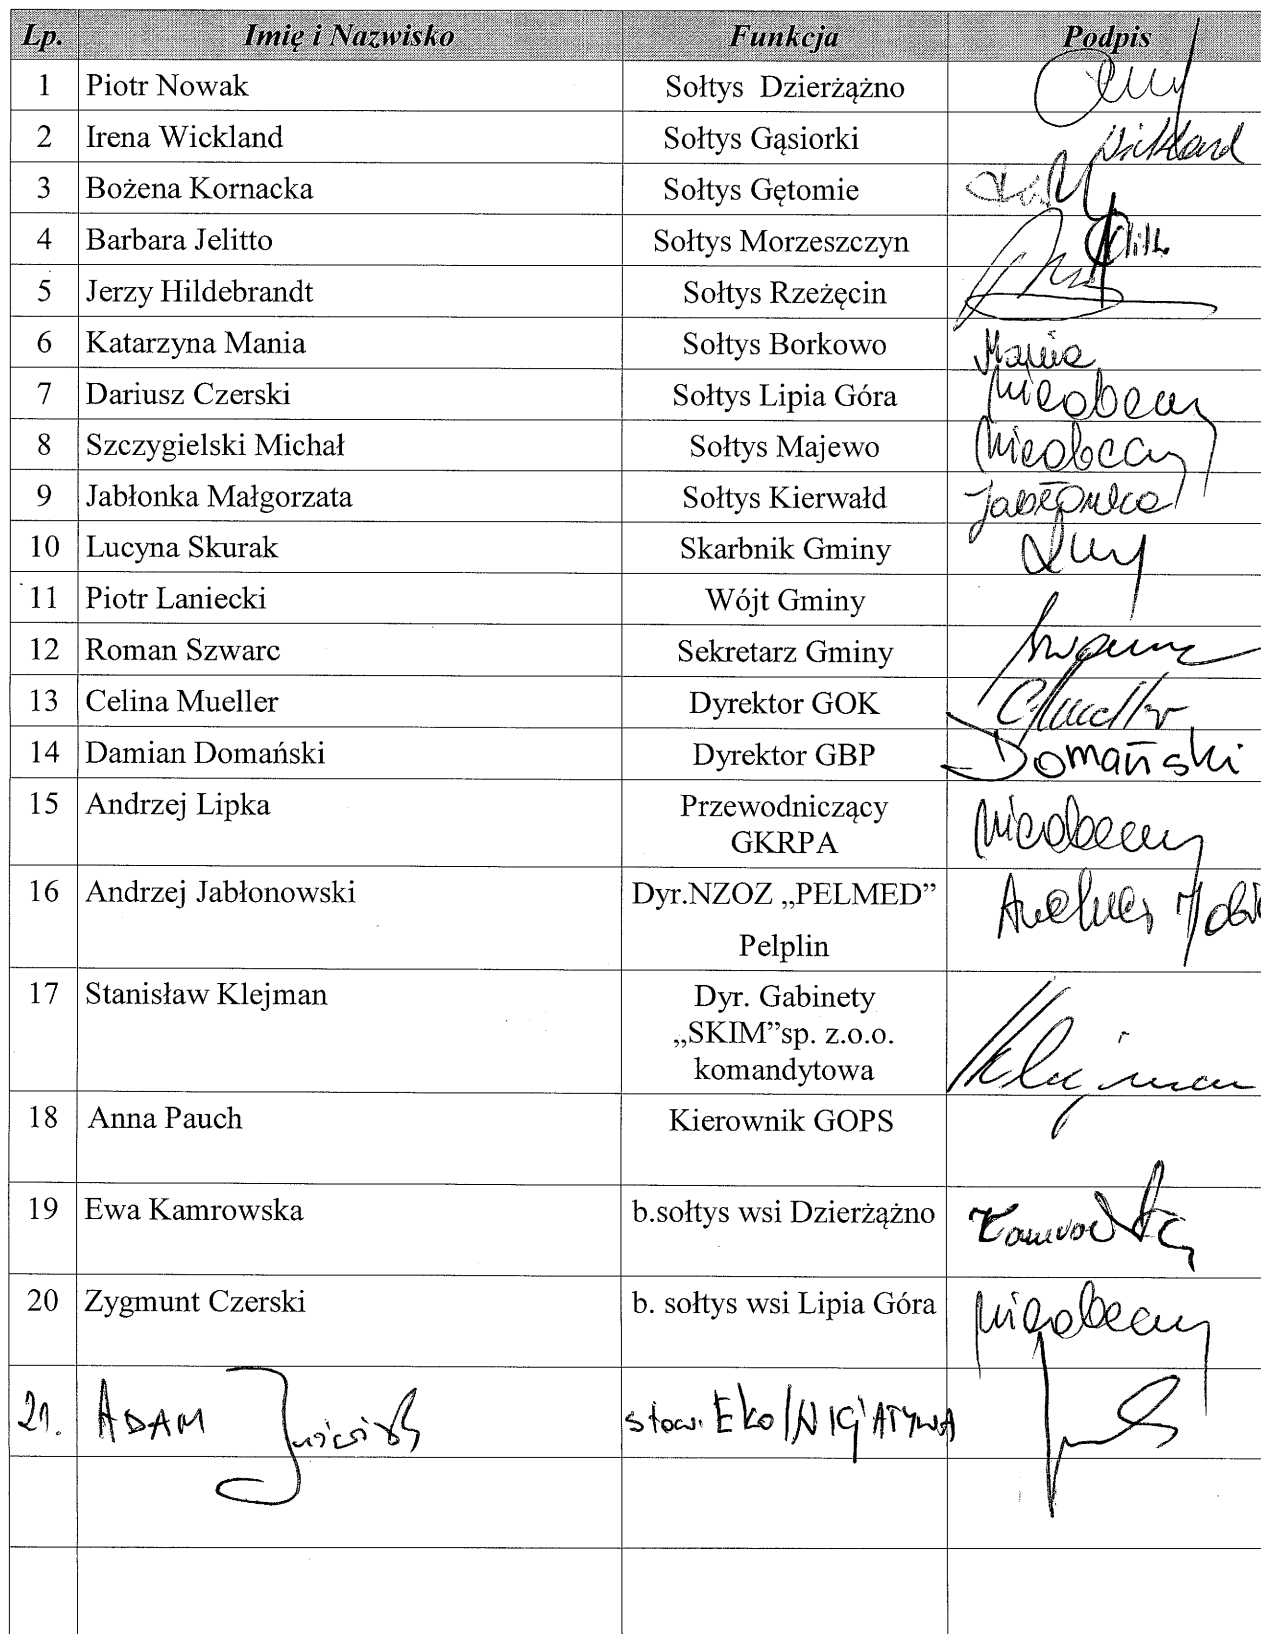 Lp. Imię i Nazwisko Funkcja Podpis
1 Piotr Nowak Sołtys Dzierżążno
2 Irena Wickland Sołtys Gąsiorki Wickland
3 Bożena Kornacka Sołtys Gętomie
4 Barbara Jelitto Sołtys Morzeszczyn
5 Jerzy Hildebrandt Sołtys Rzeżęcin
6 Katarzyna Mania Sołtys Borkowo Mania
7 Dariusz Czerski Sołtys Lipia Góra nieobecny
8 Szczygielski Michał Sołtys Majewo nieobecny
9 Jabłonka Małgorzata Sołtys Kierwałd Jabłonka
10 Lucyna Skurak Skarbnik Gminy
11 Piotr Laniecki Wójt Gminy
12 Roman Szwarc Sekretarz Gminy
13 Celina Mueller Dyrektor GOK CMueller
14 Damian Domański Dyrektor GBP Domański
15 Andrzej Lipka Przewodniczący nieobecny
GKRPA
16 Andrzej Jabłonowski Dyr.NZOZ „PELMED” Andrzej
Pelplin
17 Stanisław Klejman Dyr. Gabinety
„SKIM”sp. z.o.o.
komandytowa Klejman
18 Anna Pauch Kierownik GOPS
19 Ewa Kamrowska b.sołtys wsi Dzierżążno Kamrowska
20 Zygmunt Czerski b. sołtys wsi Lipia Góra nieobecny
21. ADAM stow. EkoINICJATYWA